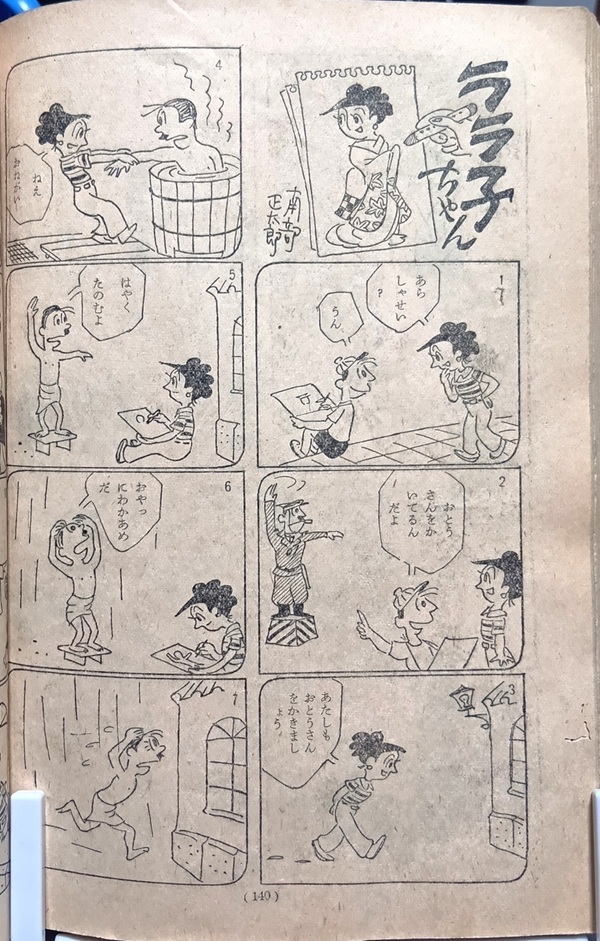 ララ子
ちゃん
南部
正太郎
1
あら
しゃせい
?
うん
2
おとう
さんをか
いてるん
だよ
3
あたしも
おとうさん
をかきまし
ょう
4
ねえ
おねがい
5
はやく
たのむよ
6
おやっ
にわかあめ
だ
7
(140)